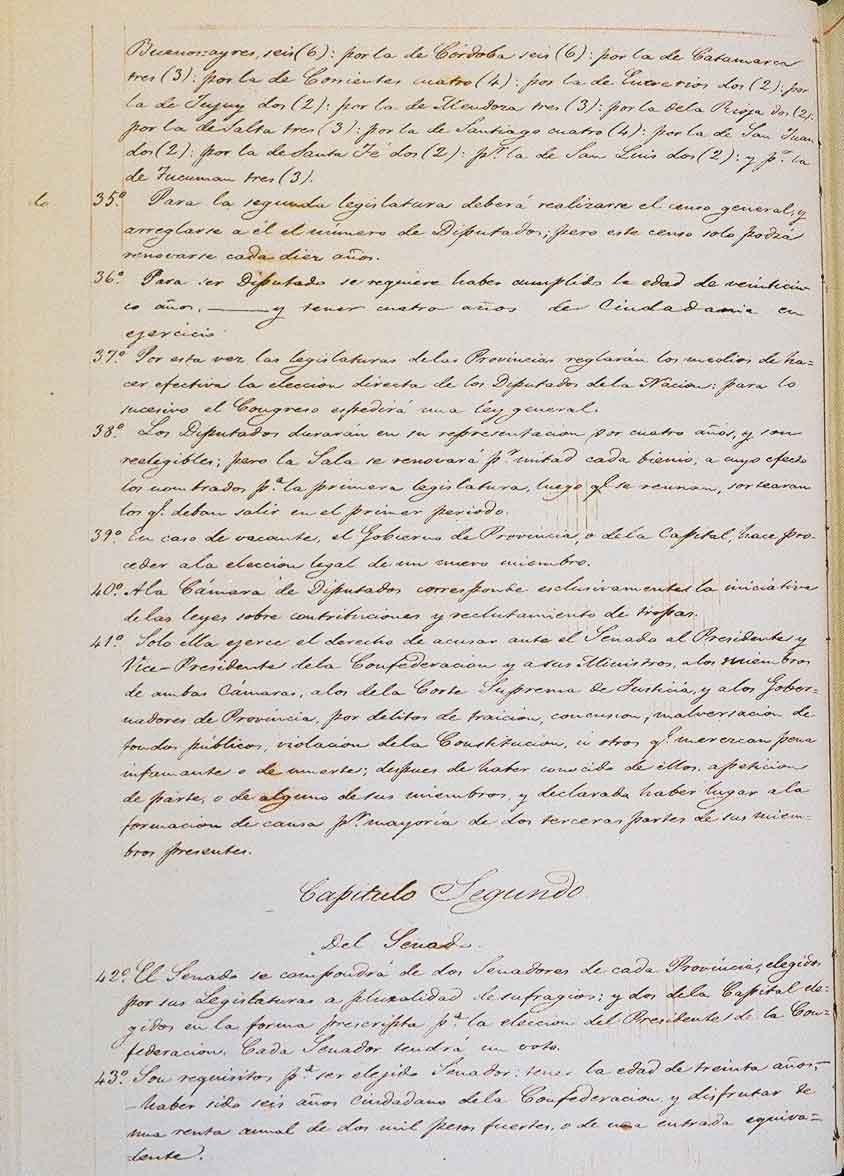 Buenos-ayres, seis (6): por la de Córdoba seis (6): por la de Catamarca
tres (3): por la de Corrientes cuatro (4): por la de Entrerios dos (2): por
la de Jujuy dos (2): por la de Mendoza tres (3): por la dela Rioja dos (2):
por la de Salta tres (3): por la de Santiago cuatro (4): por la de San Juan
dos (2): por la de Santa Fé dos (2): pr. la de San Luis dos (2): y pr. la
de Tucuman tres (3).
35.º Para la segunda legislatura deberá realizarse el censo general, y
arreglarse a él el número de Diputados; pero este censo solo podrá
renovarse cada diez años.
36.º Para ser Diputado se requiere haber cumplido la edad de veinticin
co años, — y tener cuatro años de Ciudadania en
ejercicio
37.º Por esta vez las legislaturas delas Provincias reglarán los medios de ha=
cer efectiva la eleccion directa de los Diputados dela Nacion: para lo
sucesivo el Congreso espedirá una ley general.
38.º Los Diputados durarán en su representacion por cuatro años, y son
reelegibles; pero la Sala se renovará pr. mitad cada bienio; a cuyo efecto
los nombrados pa. la primera legislatura, luego q.e se reunan, sortearan
los q.e deban salir en el primer periodo.
39.º En caso de vacante, el Gobierno de Provincia, o dela Capital, hace pro-
ceder ala eleccion legal de un nuevo miembro.
40.º Ala Cámara de Diputados corresponde esclusivamente la iniciativa
delas leyes sobre contribuciones y reclutamiento de tropas.
41.º Solo ella ejerce el derecho de acusar ante el Senado al Presidente y
Vice-Presidente dela Confederacion y a sus Ministros, alos miembros
de ambas Cámaras, alos dela Corte Suprema de Justicia, y alos Gober-
nadores de Provincia, por delitos de traicion, concusion, malversacion de
fondos públicos, violacion dela Constitucion, ú otros q.e merezcan pena
infamante o de muerte; despues de haber conocido de ellos, a peticion
de parte, o de alguno de sus miembros, y declarado haber lugar ala
formacion de causa pr. mayoría de dos terceras partes de sus miem-
bros presentes.
Capitulo Segundo
Del Senado.
42.º El Senado se compondrá de dos Senadores de cada Provincia, elegidos
por sus Legislaturas a pluralidad de sufragios; y dos dela Capital ele-
gidos en la forma prescripta pa. la eleccion del Presidente de la Con-
federacion. Cada Senador tendrá un voto.
43.º Son requisitos pa. ser elejido Senador: tener la edad de treinta años,-
-haber sido seis años ciudadano dela Confederacion, y disfrutar de
una renta anual de dos mil pesos fuertes, o de una entrada equiva-
lente.